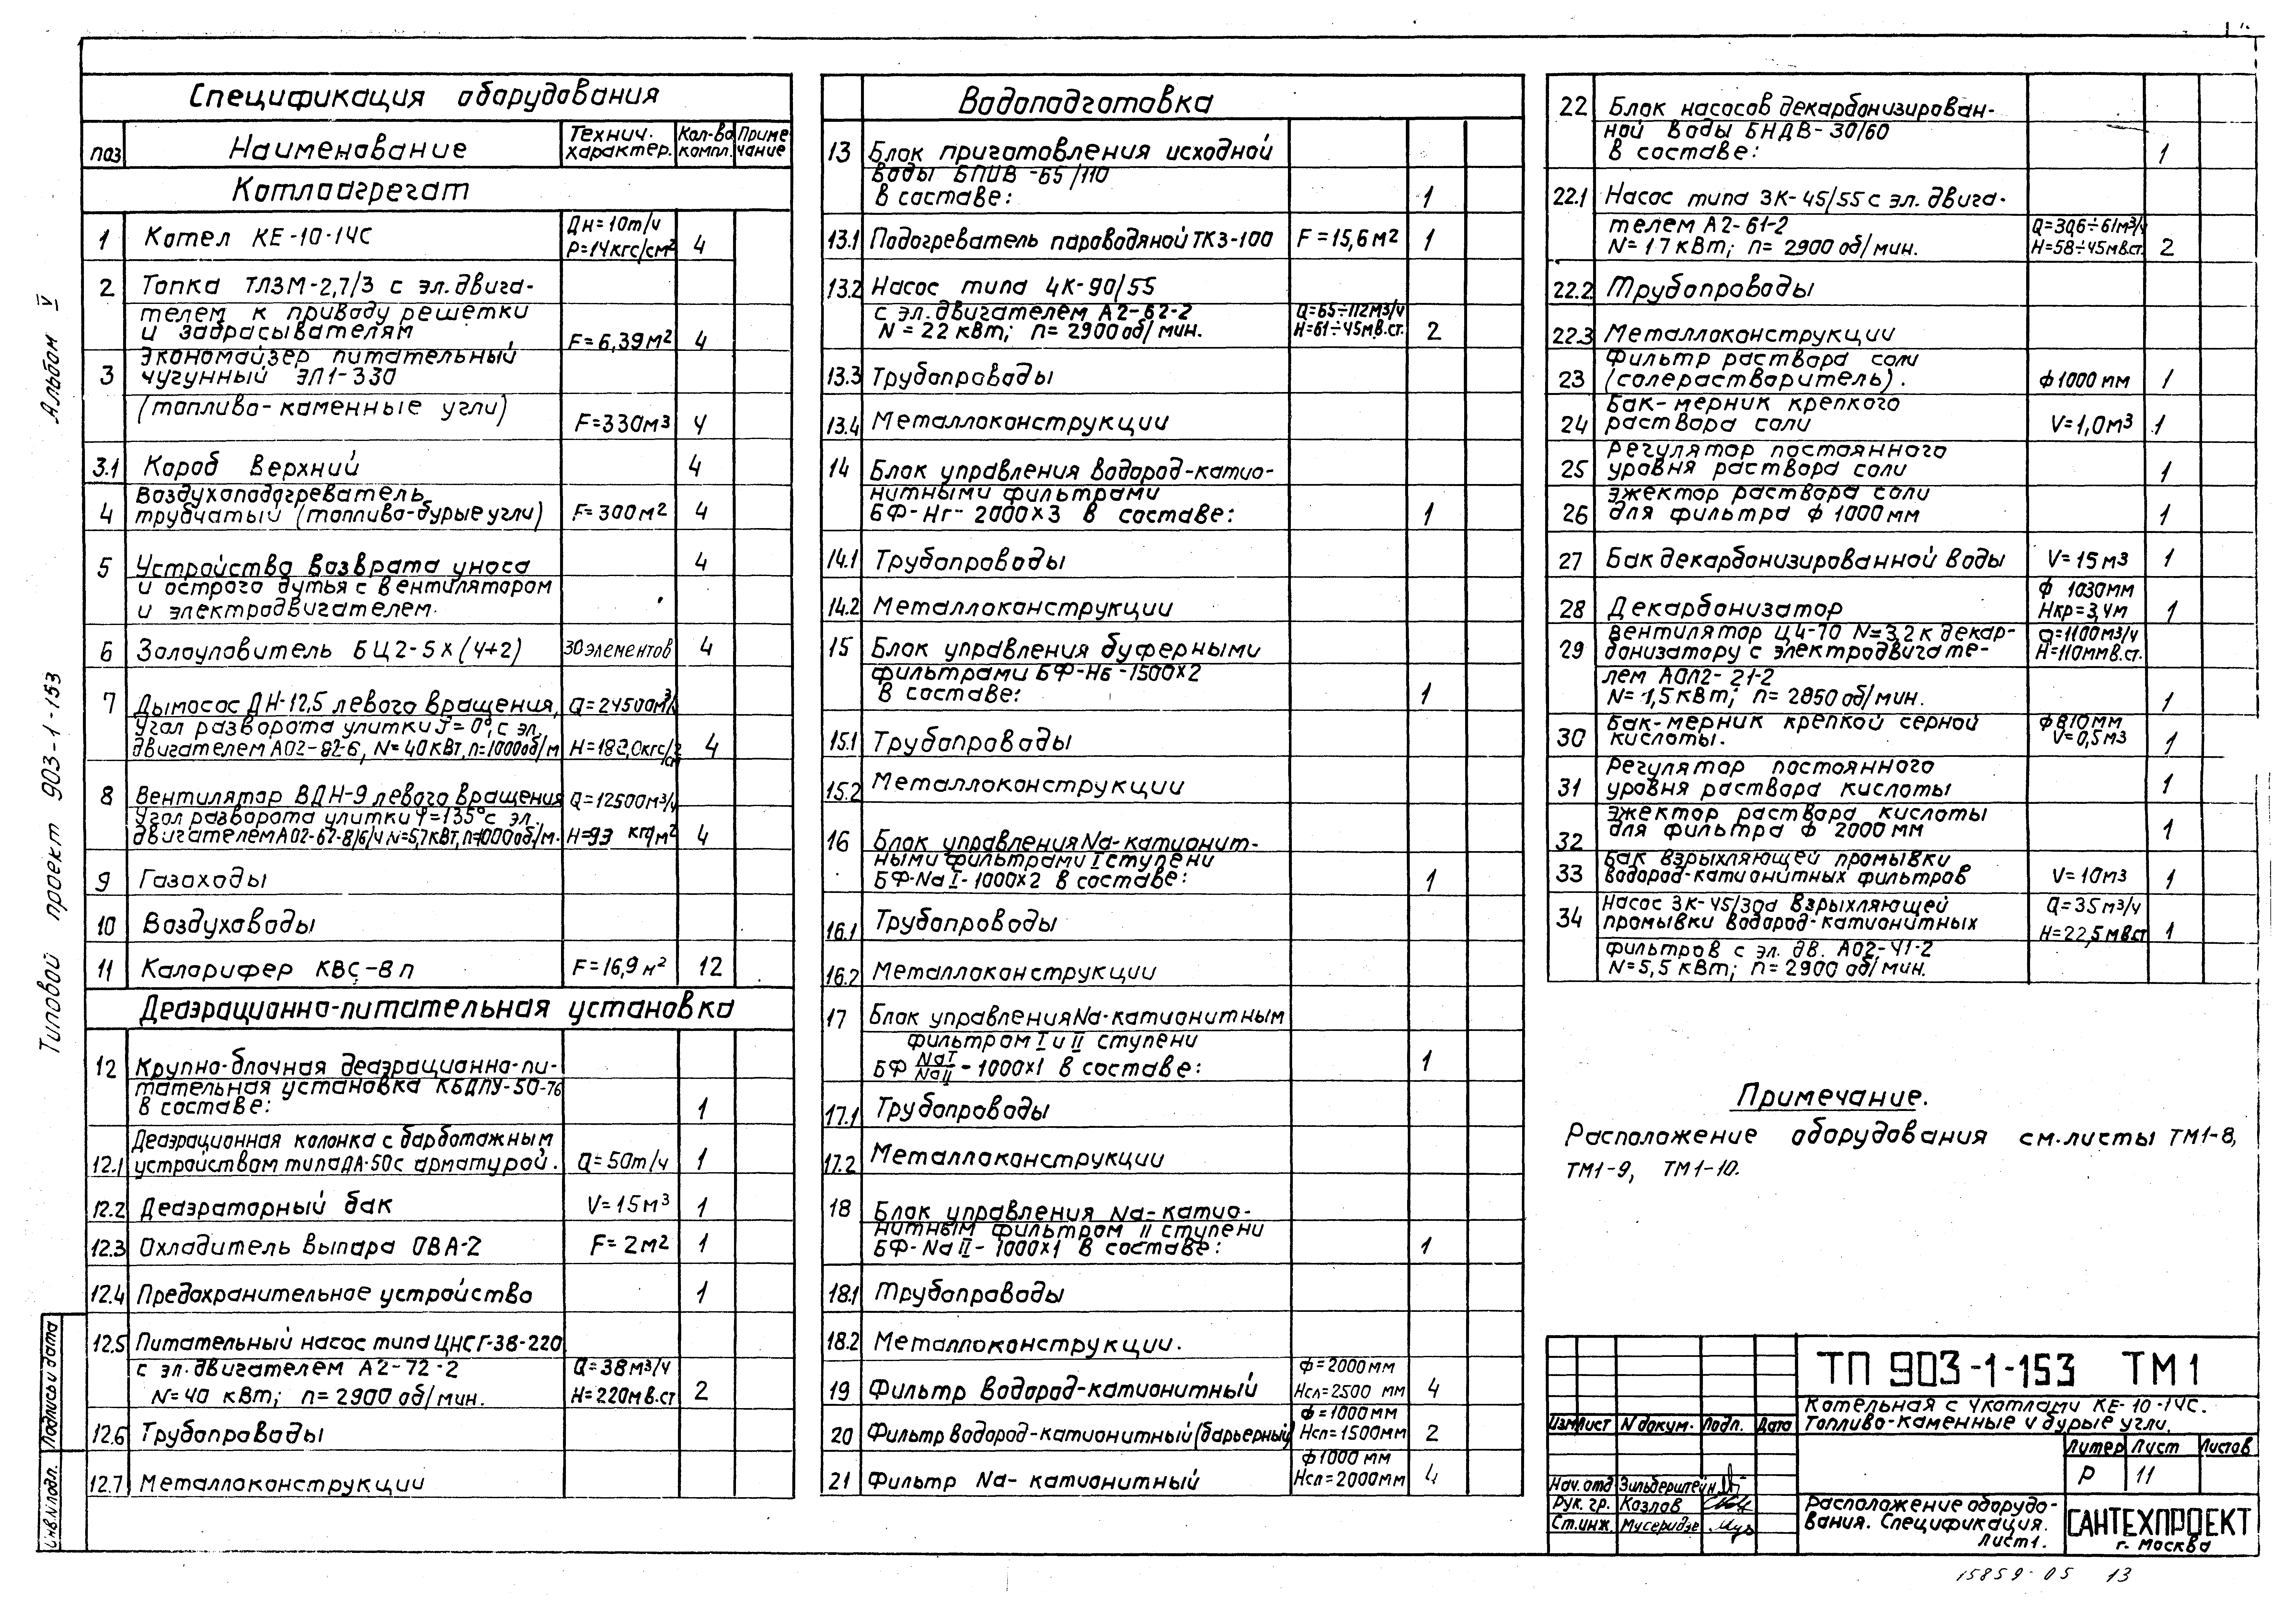 Спецификация оборудования
поз Наименование Технич. характер. Кол-во компл. Приме-чание
Котлоагрегат
1 Котел КЕ-10-14С Дн=10т/ч Р=14кгс/см² 4
2 Топка ТЛЗМ-2,7/3 с эл.двига-
телем к приводу решетки
и забрасывателям F=6,39м² 4
3 Экономайзер питательный
чугунный ЭП1-330
(топливо-каменные угли) F=330м³ 4
3.1 Короб верхний 4
4 Воздухоподогреватель
трубчатый (топливо-бурые угли) F=300м² 4
5 Устройство возврата уноса 4
и острого дутья с вентилятором
и электродвигателем.
6 Золоуловитель БЦ2-5х(4+2) 30 элементов 4
7 Дымосос ДН-12,5 левого вращения, Q=24500м³/ч
Угол разворота улитки φ=0°, с эл.
двигателем АО2-82-6, N=40кВт, n=1000об/м H=182,0кгс/ 4
8 Вентилятор ВДН-9 левого вращения Q=12500м³/ч
Угол разворота улитки φ=135° с эл.
двигателем АО2-62-8/6/4 N=5,7кВт, n=1000об/м. H=93 кгс/м² 4
9 Газоходы
10 Воздуховоды
11 Калорифер КВС-8п F=16,9м² 12
Деаэрационно-питательная установка
12 Крупно-блочная деаэрационно-пи-
тательная установка КБДПУ-50-76
в составе: 1
12.1 Деаэрационная колонка с барботажным
устройством типа ДА-50 с арматурой. Q=50т/ч 1
12.2 Деаэраторный бак V=15м³ 1
12.3 Охладитель выпара ОВА-2 F=2м² 1
12.4 Предохранительное устройство 1
12.5 Питательный насос типа ЦНСГ-38-220
с эл.двигателем А2-72-2 Q=38м³/ч
N=40 кВт; n=2900 об/мин. H=220м в.ст 2
12.6 Трубопроводы
12.7 Металлоконструкции
Водоподготовка
13 Блок приготовления исходной
воды БПИВ-65/110
в составе: 1
13.1 Подогреватель пароводяной ТКЗ-100 F=15,6м² 1
13.2 Насос типа 4К-90/55
с эл.двигателем А2-62-2 Q=65÷112м3/ч
N=22 кВт; n=2900 об/мин. H=61÷45м в.ст. 2
13.3 Трубопроводы
13.4 Металлоконструкции
14 Блок управления водород-катио-
нитными фильтрами
БФ-Нг-2000х3 в составе: 1
14.1 Трубопроводы
14.2 Металлоконструкции
15 Блок управления буферными
фильтрами БФ-Нб-1500х2
в составе: 1
15.1 Трубопроводы
15.2 Металлоконструкции
16 Блок управления Na-катионит-
ными фильтрами I ступени
БФ-Na I-1000х2 в составе: 1
16.1 Трубопроводы
16.2 Металлоконструкции
17 Блок управления Na-катионитным
фильтром I и II ступени
БФ NaI/NaII-1000х1 в составе: 1
17.1 Трубопроводы
17.2 Металлоконструкции
18 Блок управления Na-катио-
нитным фильтром II ступени
БФ-Na II-1000х1 в составе: 1
18.1 Трубопроводы
18.2 Металлоконструкции.
19 Фильтр водород-катионитный ф=2000мм Нсл=2500 мм 4
20 Фильтр водород-катионитный (барьерный) ф=1000мм Нсл=1500мм 2
21 Фильтр Na-катионитный ф1000 мм Нсл=2000мм 4
22 Блок насосов декарбонизирован-
ной воды БНДВ-30/60
в составе: 1
22.1 Насос типа 3К-45/55 с эл. двига-
телем А2-61-2 Q=30,6÷61м³/ч
N=17 кВт; n=2900 об/мин. H=58÷45м в.ст. 2
22.2 Трубопроводы
22.3 Металлоконструкции
23 Фильтр раствора соли
(солерастворитель). ф1000 мм 1
24 Бак-мерник крепкого
раствора соли V=1,0м3 1
25 Регулятор постоянного
уровня раствора соли 1
26 Эжектор раствора соли
для фильтра ф 1000 мм 1
27 Бак декарбонизированной воды V=15м3 1
28 Декарбонизатор ф 1030мм Нкр=3,4м 1
29 Вентилятор Ц4-70 N=3,2 к декар- Q=1100м3/ч
бонизатору с электродвигате- H=110мм в.ст.
лем АОЛ2-21-2
N=1,5кВт; n=2850 об/мин. 1
30 Бак-мерник крепкой серной ф810мм
кислоты. V=0,5м3 1
31 Регулятор постоянного
уровня раствора кислоты 1
32 Эжектор раствора кислоты
для фильтра ф 2000 мм 1
33 Бак взрыхляющей промывки
водород-катионитных фильтров V=10м3 1
34 Насос 3К-45/30а взрыхляющей Q=35м³/ч
промывки водород-катионитных H=22,5м в.ст 1
фильтров с эл. дв. АО2-41-2
N=5,5 кВт; n=2900 об/мин.
Примечание.
Расположение оборудования см.листы ТМ1-8,
ТМ1-9, ТМ1-10.
ТП 903-1-153 ТМ1
Котельная с 4 котлами КЕ-10-14С.
Топливо-каменные и бурые угли.
Изм Лист N докум. Подп. Дата
Литер Лист Листов
Р 11
Нач.отд Зильберштейн
Рук. гр. Козлов
Ст.инж. Мусеридзе
Расположение оборудо-
вания. Спецификация.
Лист1.
САНТЕХПРОЕКТ
г. Москва
15859-05 13
Типовой проект 903-1-153 Альбом V
Подпись и дата
Инв.N подл.